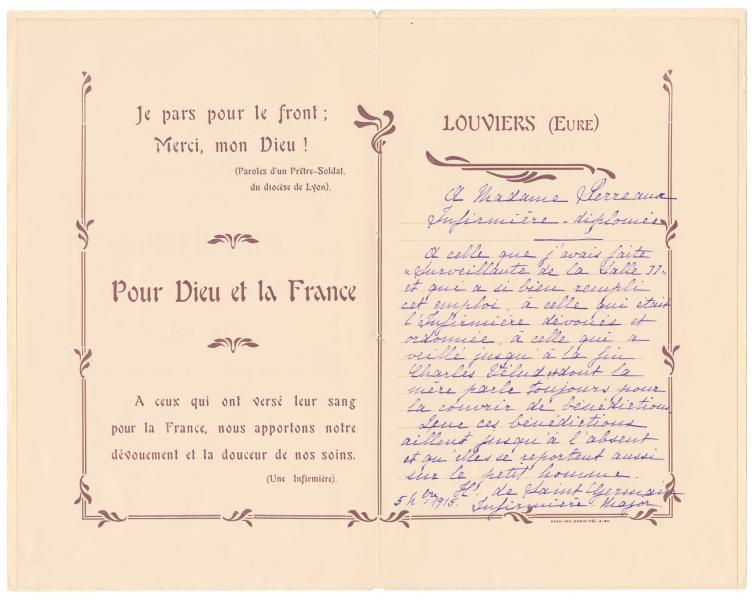 Je pars pour le front ;
Merci, mon Dieu !
(Paroles d'un Prêtre-Soldat,
du diocèse de Lyon).
Pour Dieu et la France
A ceux qui ont versé leur sang
pour la France, nous apportons notre
dévouement et la douceur de nos soins.
(Une Infirmière).
LOUVIERS (EURE)
A Madame Perreaux
Infirmière - diplomée
A celle que j'avais faite
"Surveillante de la Salle II"
et qui a si bien rempli
cet emploi, à celle qui était
l'Infirmière dévouée et
ordonnée, à celle qui a
veillé jusqu'à la fin
Charles dont la
mère parle toujours pour
la couvrir de bénédictions.
Que ces bénédictions
aillent jusqu'à l'absent
et qu'elles se reportent aussi
sur le petit homme.
H. de Saint Germain
5 1915. Infirmière Major.